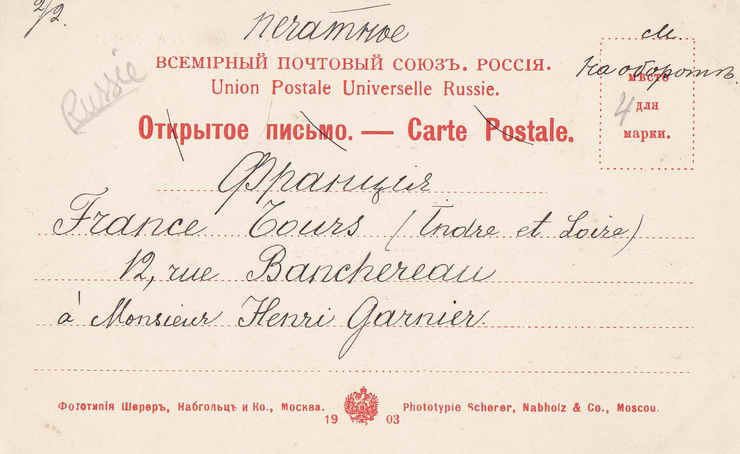 2/2.
печатное
см.
на оборотѣ.
Russie
ВСЕМІРНЫЙ ПОЧТОВЫЙ СОЮЗЪ. РОССІЯ.
Union Postale Universelle Russie.
Открытое письмо. — Carte Postale.
МѢСТО
ДЛЯ
МАРКИ.
4
Франція
France Tours (Indre et Loire)
12, rue Banchereau
à Monsieur Henri Garnier.
Фототипія Шереръ, Набгольцъ и Ко., Москва.
Phototypie Scherer, Nabholz & Co., Moscou.
19 03